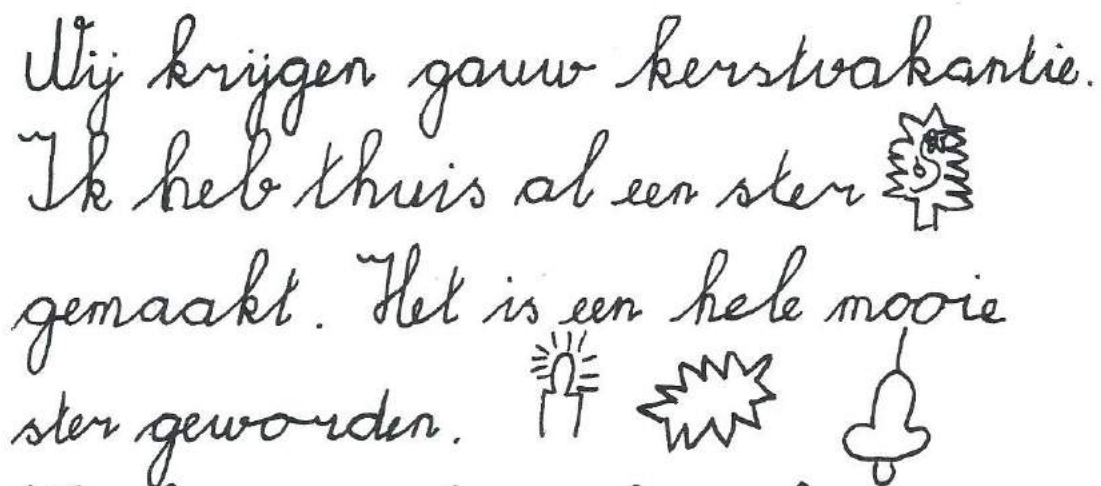 Wij krijgen gauw kerstvakantie.
Ik heb thuis al een ster
gemaakt. Het is een hele mooie
ster geworden.